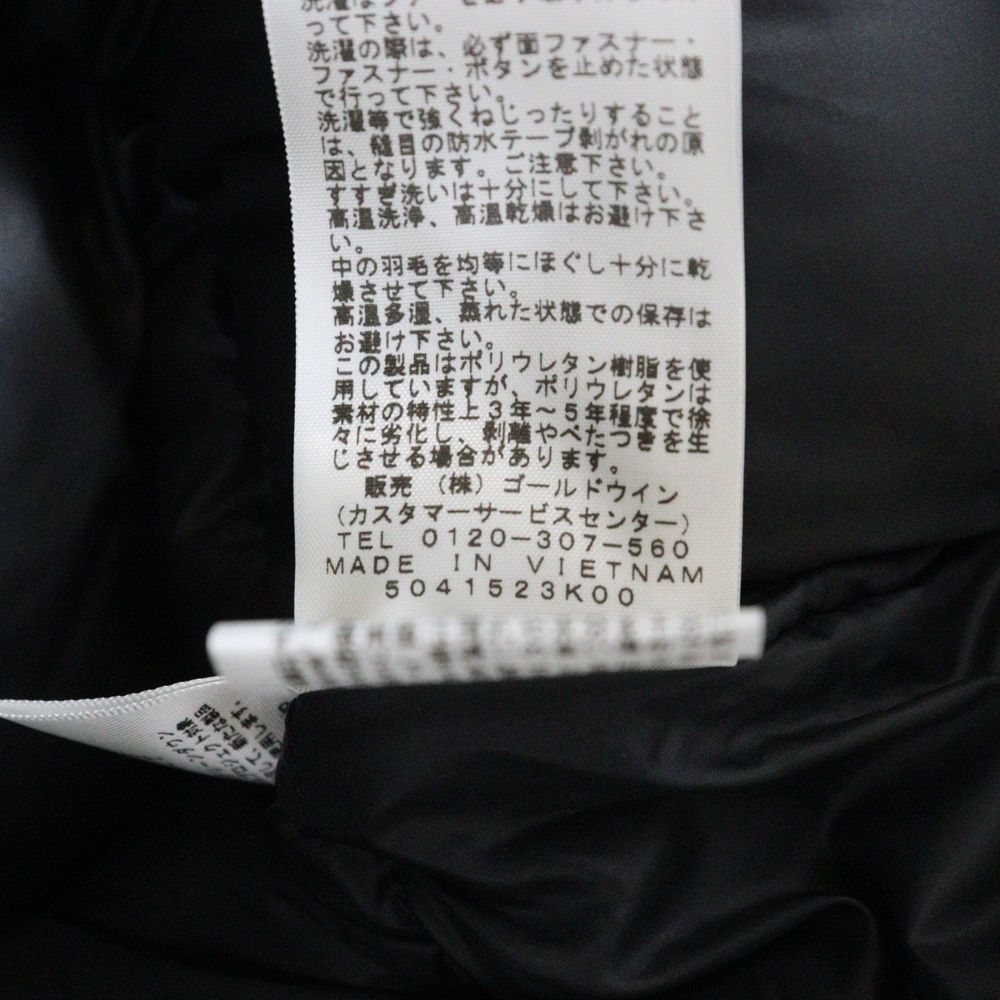 って下さい。
洗濯の際は、必ず面ファスナー・
ファスナー・ボタンを止めた状態
で行って下さい。
洗濯等で強くねじったりすること
は、縫目の防水テープ剥がれの原
因となります。ご注意下さい。
すすぎ洗いは十分にして下さい。
高温洗浄、高温乾燥はお避け下さ
い。
中の羽毛を均等にほぐし十分に乾
燥させて下さい。
高温多湿、蒸れた状態での保存は
お避け下さい。
この製品はポリウレタン樹脂を使
用していますが、ポリウレタンは
素材の特性上3年～5年程度で徐
々に劣化し、剥離やべたつきを生
じさせる場合があります。
販売 (株) ゴールドウイン
(カスタマーサービスセンター)
TEL 0120-307-560
MADE IN VIETNAM
5041523K00